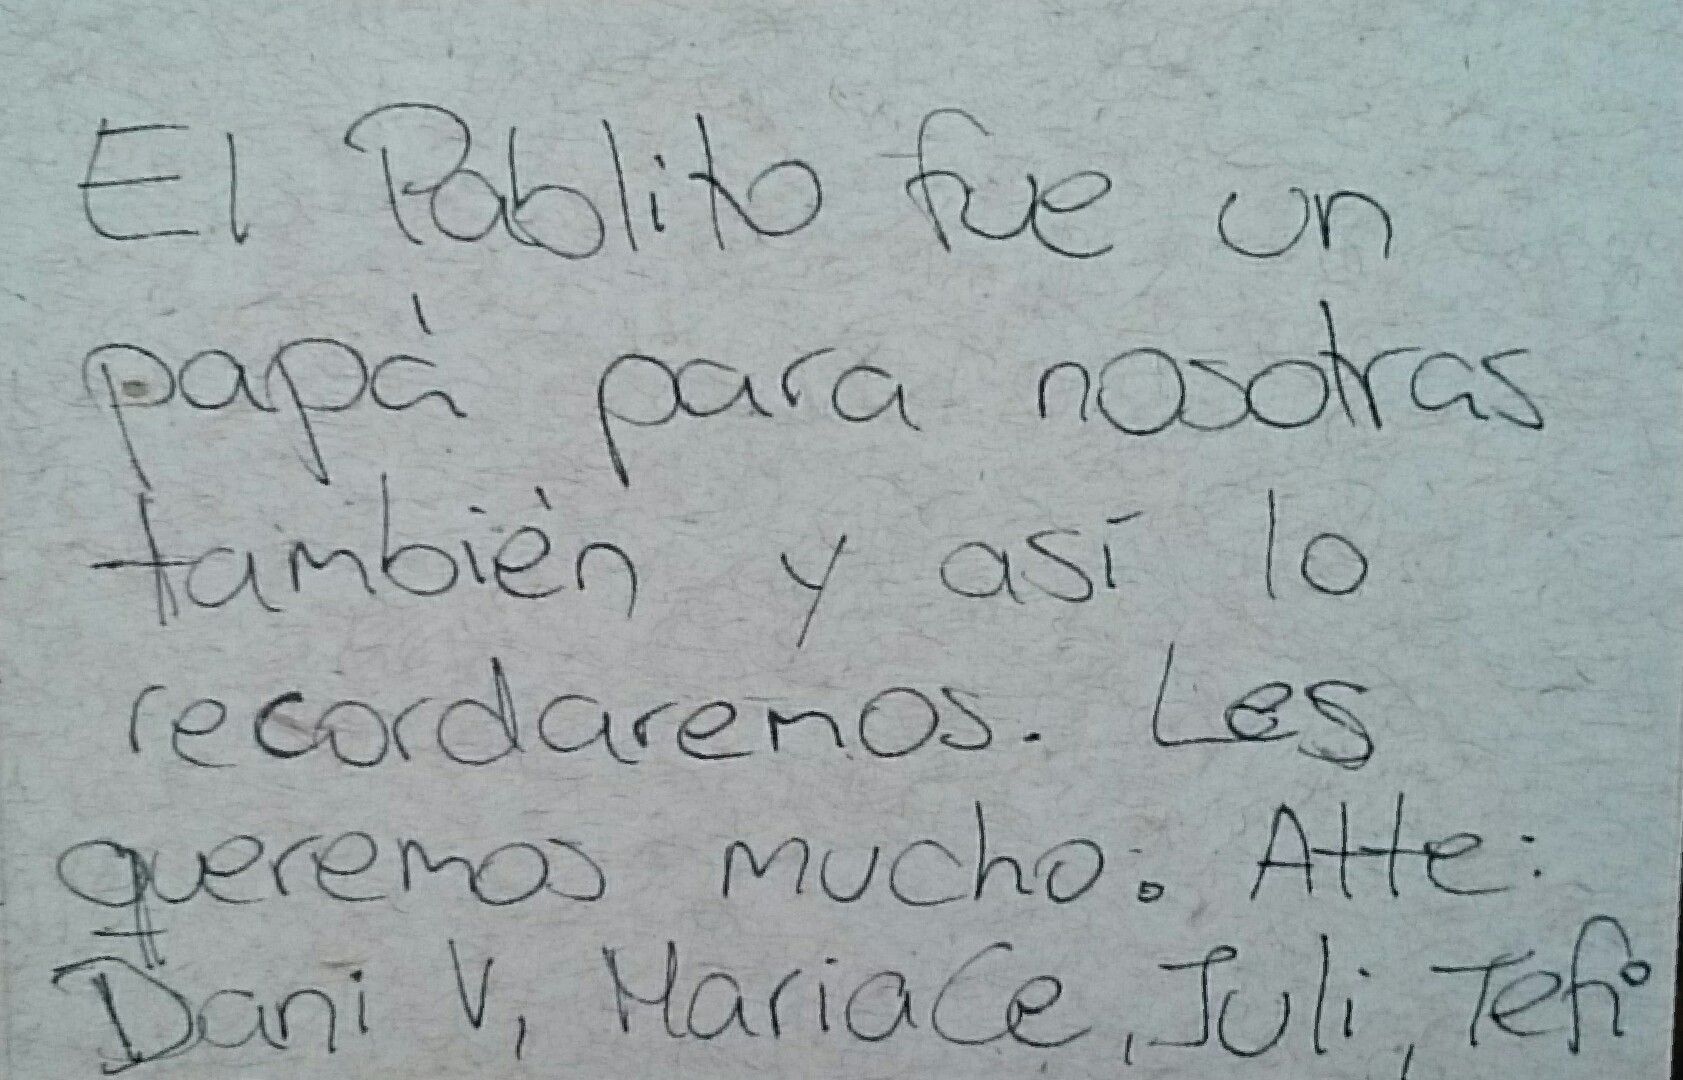 El Pablito fue un
papá para nosotras
también y así lo
recordaremos. Les
queremos mucho. Atte:
Dani V, MariaCe, Juli, Tefi